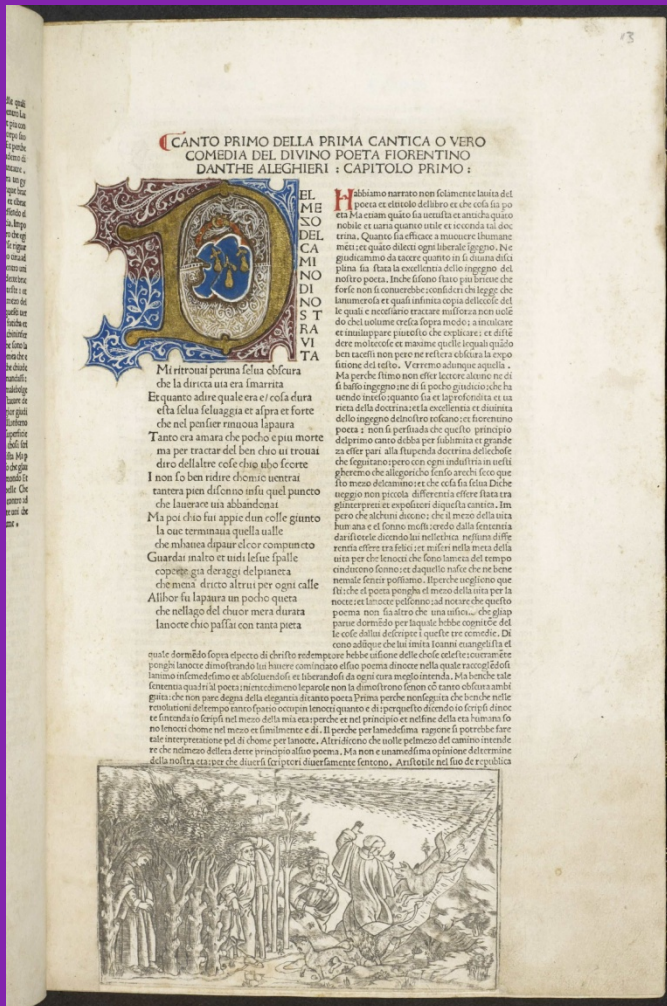 13
CANTO PRIMO DELLA PRIMA CANTICA O VERO
COMEDIA DEL DIVINO POETA FIORENTINO
DANTHE ALEGHIERI : CAPITOLO PRIMO :
D EL
ME
ZO
DEL
CA
MI
NO
DI
NO
S T
RA
VI
TA
Mi ritrouai peruna selua obscura
che la diricta uia era smarrita
Et quanto adire quale era e/ cosa dura
esta selua seluaggia et aspra et forte
che nel pensier rinuoua lapaura
Tanto era amara che pocho e piu morte
ma per tractar del ben chio ui trouai
diro dellaltre cose chio uho scorte
I non so ben ridire chomio uentrai
tantera pien disonno insu quel puncto
che lauerace uia abbandonai
Ma poi chio fui appie dun colle giunto
la oue terminaua quella ualle
che mhauea dipaur elcor compuncto
Guardai inalto et uidi lesue spalle
coperte gia deraggi delpianeta
che mena dricto altrui per ogni calle
Allhor fu lapaura un pocho queta
che nellago del chuor mera durata
lanocte chio passai con tanta pieta
Habbiamo narrato non solamente lauita del
poeta et eltitolo dellibro et che cosa sia po
eta Ma etiam quāto sia uetusta et anticha quāto
nobile et uaria quanto utile et ioconda tal doc
trina. Quanto sia efficace a muouere lhumane
mēti: et quāto dilecti ogni liberale īgegno. Ne
giudicammo da tacere quanto in si diuina disci
plina sia stata la excellentia dello ingegno del
nostro poeta. Inche sisono stato piu brieue che
forse non si conuerebbe: consideri chi legge che
lanumerosa et quasi infinita copia dellecose del
le quali e necessario tractare misforza non uolē
do chel uolume cresca sopra modo: a inculcare
et inuiluppare piutosto che explicare: et distē
dere moltecose et maxime quelle lequali quādo
ben tacessi non pero ne restera obscura la expo
sitione del testo. Verremo adunque aquella.
Ma perche stimo non esser lectore alcuno ne di
si basso ingegno: ne di si pocho giudicio: che ha
uendo inteso: quanto sia et laprofondita et ua
rieta della doctrina: et la excellentia et diuinita
dello ingegno delnostro toscano: et fiorentino
poeta: non si persuada che questo principio
delprimo canto debba per sublimita et grande
za esser pari alla stupenda doctrina dellechose
che seguitano: pero con ogni industria in uesti
gheremo che allegoricho senso arechi seco que
sto mezo delcamino: et che cosa sia selua Diche
ueggio non piccola differentia essere stata tra
glinterpreti et expositori diquesta cantica. Im
pero che alchuni dicono: che il mezo della uita
humana e el sonno mossi: credo dalla sententia
daristotele dicendo lui nellethica nessuna diffe
rentia essere tra felici: et miseri nella meta della
uita per che lenocti che sono lameta del tempo
cinducono sonno: et daquello nasce che ne bene
nemale sentir possiamo. Ilperche uogliono que
sti: che el poeta pongha el mezo della uita per la
nocte: et lanocte pelsonno: ad notare che questo
poema non sia altro che una uisione che gliap
parue dormēdo per laquale hebbe cognitiōe del
le cose dallui descripte ī queste tre comedie. Di
cono adūque che lui imita Ioanni euangelista el
quale dormēdo sopra elpecto di christo redemptore hebbe uisione delle chose celeste: oueramēte
ponghi lanocte dimostrando lui hauere cominciato elsuo poema dinocte nella quale raccogliēdosi
lanimo insemedesimo et absoluendosi et liberandosi da ogni cura meglo intenda. Ma benche tale
sententia quadri al poeta: nientedimeno leparole non la dimostrono senon cō tanto obscura ambi
guita: che non pare degna della elegantia ditanto poeta Prima perche nonseguita che benche nelle
reuolutioni deltempo tanto spatio occupin lenocti quanto e di: perquesto dicendo io scripsi dinoc
te sintenda io scripsi nel mezo della mia eta: perche et nel principio et nelfine della eta humana so
no lenocti chome nel mezo et similmente e di. Il perche per lamedesima ragione si potrebbe fare
tale interpretatione pel di chome per lanocte. Altri dicono che uolle pelmezo del camino intende
re che nelmezo delleta dette principio alsuo poema. Ma non e unamedesima opinione deltermine
della nostra eta: per che diuersi scriptori diuersamente sentono. Aristotile nel suo de republica